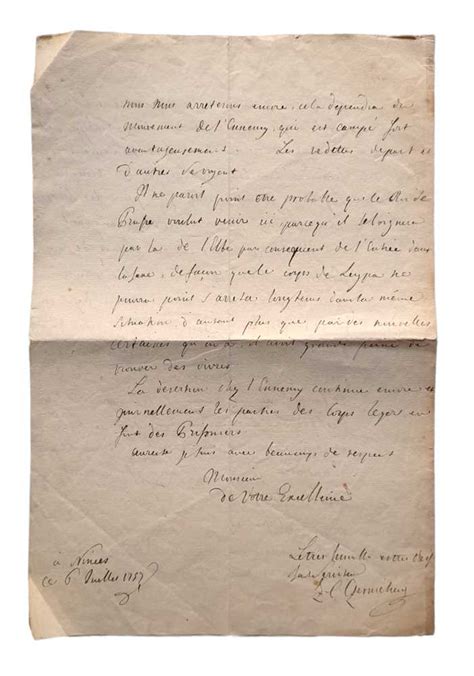 nous nous arreterons encore, cela dependra du
mouvement de l'Ennemy, qui est campé fort
avantageusement. Les redoutes de part et
d'autres se voyent
Il ne paroit point être probable que le Roi de
Prusse voulut venir ici parcequ'il seloignera
par la de l'Elbe par consequent de l'Entrée dans
la Saxe, de façon que le corps de
pourra point s'arreter longtems dans la même
situation d'autant plus que par des nouvelles
certaines qu'on a, il aient grande peine de
trouver des vivres.
La desertion chez l'Ennemy continue encore et
journellement les parties des corps legers en
font des Prisoniers
aureste je suis avec beaucoup de respect
Monsieur
de Votre Excellence
à
ce 6 Juillet 1757
Le tres humble et tres